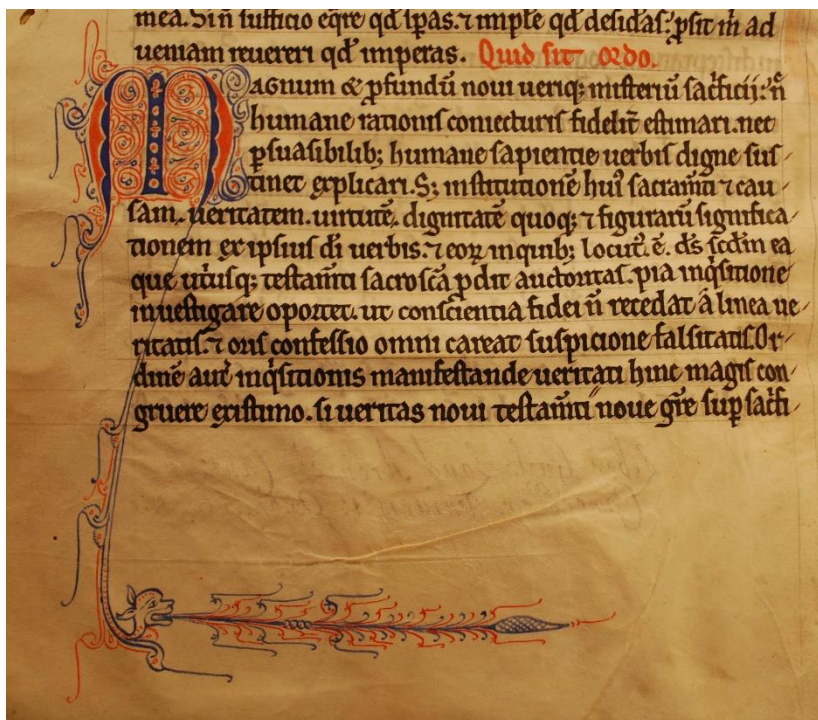 mea. Si ñ sufficio eq̃re qđ ip̃as. ⁊ imple qđ desid̾as. ꝓsit m̃ ad
ueniam reuereri qđ imperas. Quid sit ordo.
MAGnum & ꝓfundũ noui ueriq; misteriũ sac̾ficij. ñ
humane rationis coniecturis fidelit̾ estimari. nec
ꝑsuasibilib; humane sapientie uerbis digne sus
tinet explicari. S; institutionẽ huiꝰ sacram̃ti ⁊ cau
sam. ueritatem. uirtutẽ. dignitatẽ quoq; ⁊ figurarũ significa
tionem ex ipsius di uerbis. ⁊ eoꝝ inquib; locutꝰ ẽ. d̃s scd̃m ea
que ut̾usq; testam̃ti sacrosc̃a ꝓdit auctoritas. pia inq̾sitione
inuestigare oportet. ut conscientia fidei ñ recedat a linea ue
ritatis. ⁊ oris confessio omni careat suspicione falsitatis. Or
dinẽ autẽ inq̾sitionis manifestande ueritati hinc magis con
gruere existimo. si ueritas noui testam̃ti noue gr̃e suꝑ sac̾fi